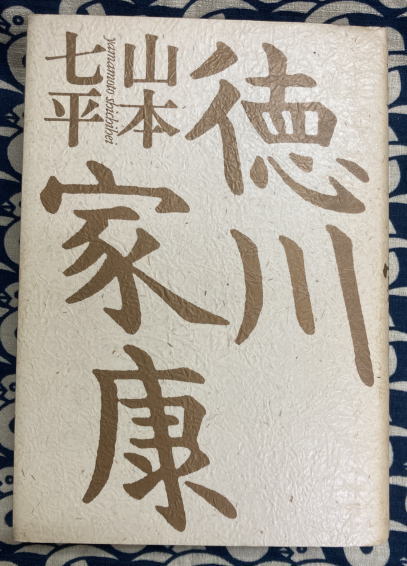 徳川
家康
山本
七平
yamamoto shichihei